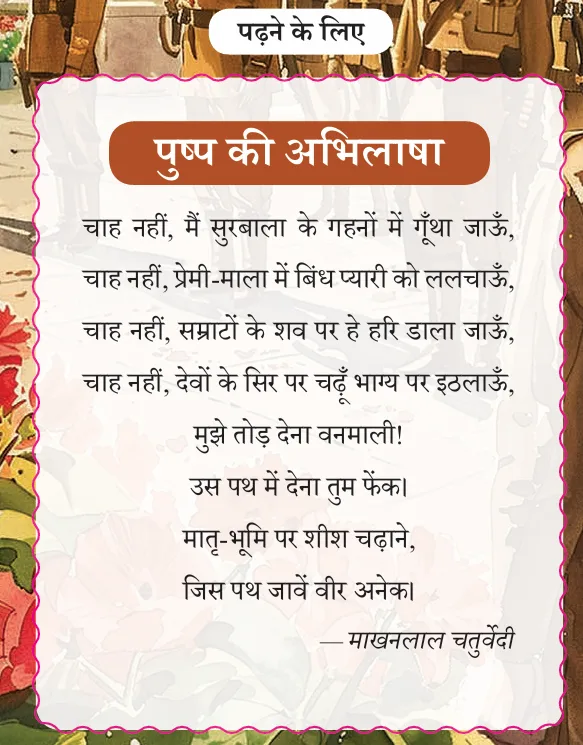 पढ़ने के लिए
पुष्प की अभिलाषा
चाह नहीं, मैं सुरबाला के गहनों में गूँथा जाऊँ,
चाह नहीं, प्रेमी-माला में बिंध प्यारी को ललचाऊँ,
चाह नहीं, सम्राटों के शव पर हे हरि डाला जाऊँ,
चाह नहीं, देवों के सिर पर चढ़ूँ भाग्य पर इठलाऊँ,
मुझे तोड़ देना वनमाली!
उस पथ में देना तुम फेंक।
मातृ-भूमि पर शीश चढ़ाने,
जिस पथ जावें वीर अनेक।
— माखनलाल चतुर्वेदी